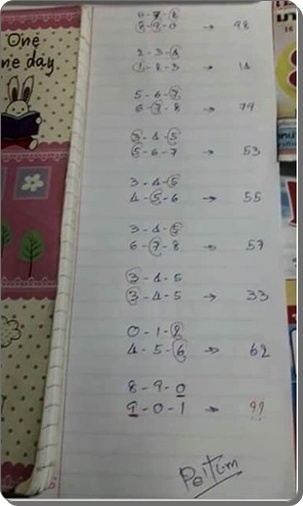 One
ne day
6-7-8
8-9-0 → 98
2-3-4
1-2-3 → 14
5-6-7
6-7-8 → 79
3-4-5
5-6-7 → 53
3-4-5
4-5-6 → 55
3-4-5
6-7-8 → 57
3-4-5
3-4-5 → 33
0-1-2
4-5-6 → 62
8-9-0
9-0-1 → ??
Poitum